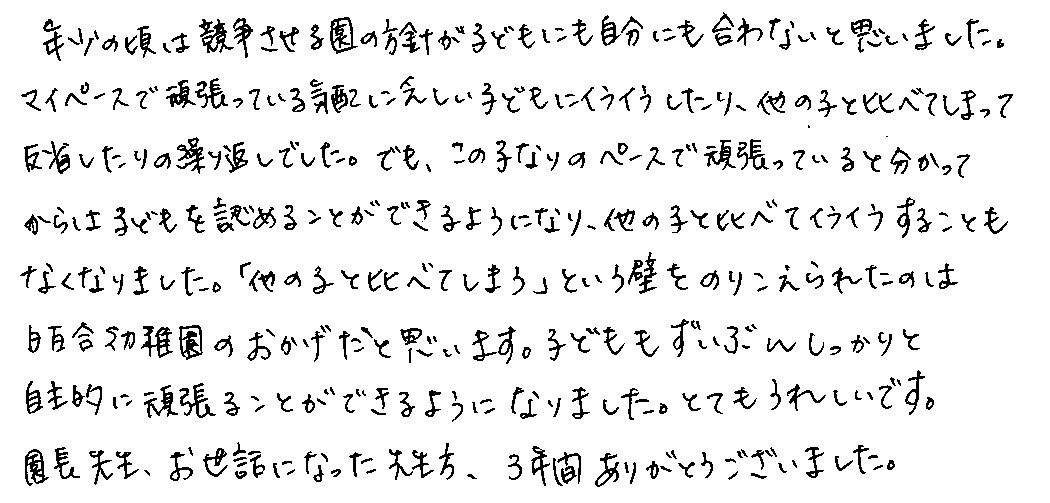 年少の頃は競争させる園の方針が子どもにも自分にも合わないと思いました。
マイペースで頑張っている気配に乏しい子どもにイライラしたり、他の子と比べてしまって
反省したりの繰り返しでした。でも、この子なりのペースで頑張っていると分かって
からは子どもを認めることができるようになり、他の子と比べてイライラすることも
なくなりました。「他の子と比べてしまう」という壁をのりこえられたのは
白百合幼稚園のおかげだと思います。子どももずいぶんしっかりと
自主的に頑張ることができるようになりました。とてもうれしいです。
園長先生、お世話になった先生方、3年間ありがとうございました。